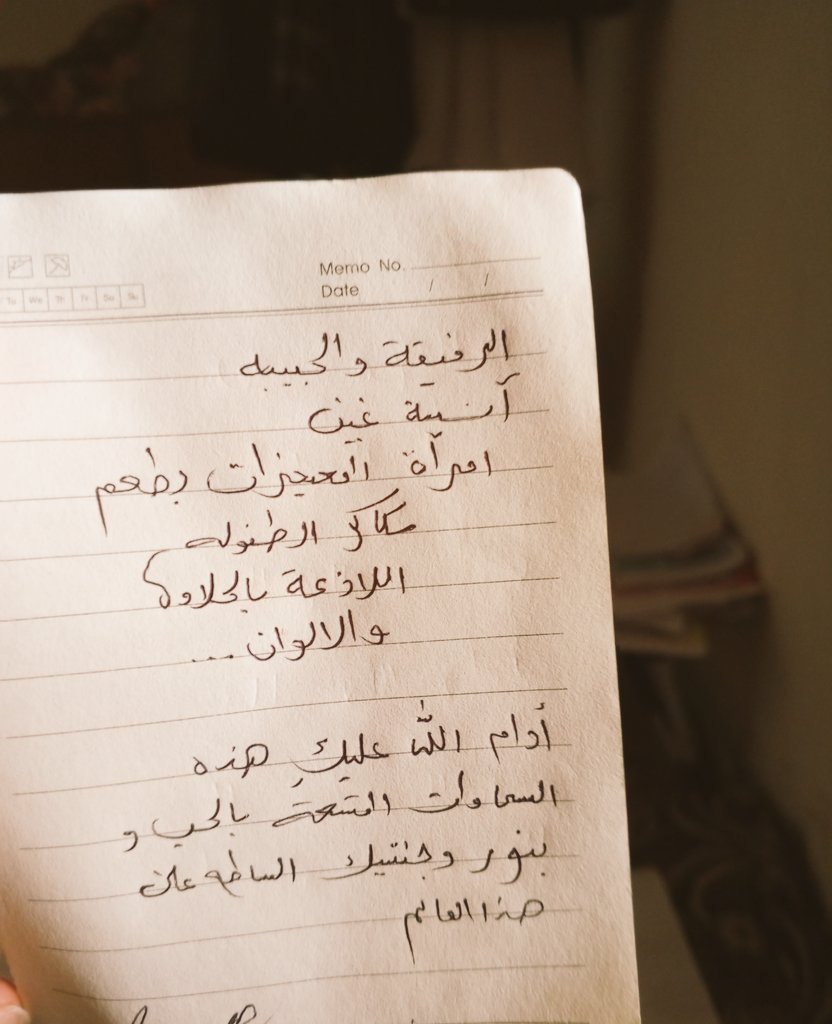 Memo No.
Date / /
Tu We Th Fr Sa Su
الرفيقة والحبيبه
آنسية غيث
امرأة المعجزات بطعم
سكاكر الطفوله
اللاذعة بالحلاوة
والالوان...
أدام اللّه عليكِ هذه
السماوات المتسعة بالحب و
بنور وجنتيك الساطع على
هذا العالم